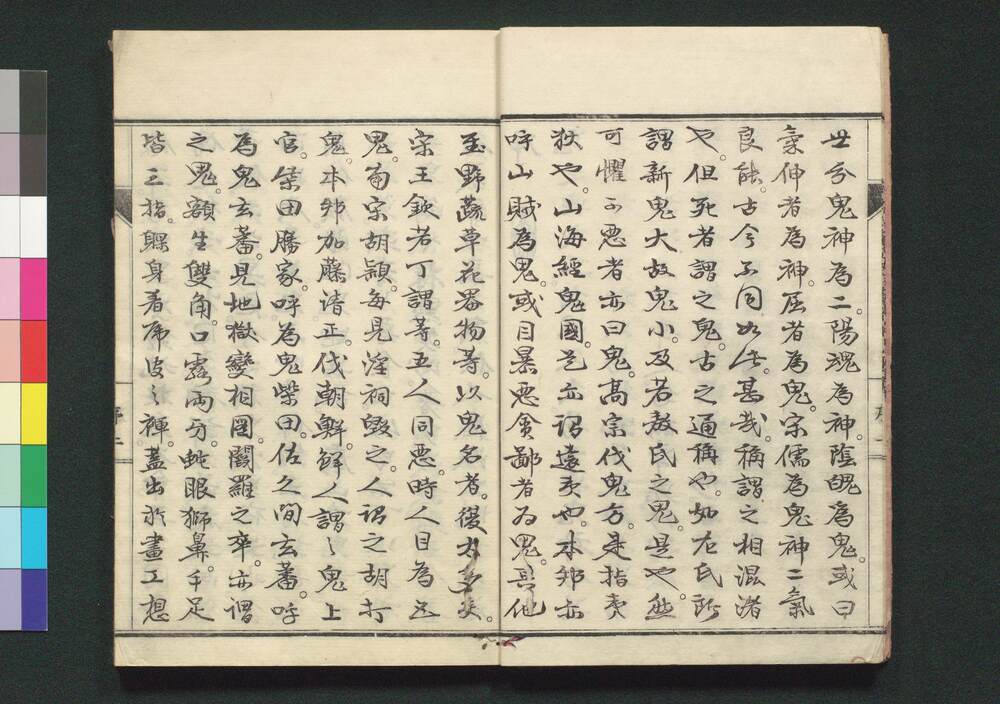 世分鬼神為二。陽魂為神。陰魄為鬼。或曰
氣伸者為神。屈者為鬼。宋儒為鬼神二氣
良能。古今不同如此。甚哉稱謂之相混淆
也。但死者謂之鬼。古之通稱也。如左氏所
謂新鬼大故鬼小。及若敖氏之鬼。是也。然
可懼可惡者亦曰鬼。高宗伐鬼方。是指夷
狄也。山海經鬼國。是亦謂遠夷也。本邦亦
呼山賊為鬼。或目暴惡貪鄙者為鬼。其他
至野蔬草花器物等。以鬼名者。復太多矣。
宋王欽若丁謂等。五人同惡。時人目為五
鬼。南宋胡穎。每見淫祠毀之。人謂之胡打
鬼。本邦加藤清正。伐朝鮮。鮮人謂之鬼上
官。柴田勝家。呼為鬼柴田。佐久間玄蕃。呼
為鬼玄蕃。見地獄變相圖。閻羅之卒。亦謂
之鬼。額生雙角。口露兩牙。蛇眼獅鼻。手足
皆三指。躶身着虎皮之褌。蓋出於畫工想
序二